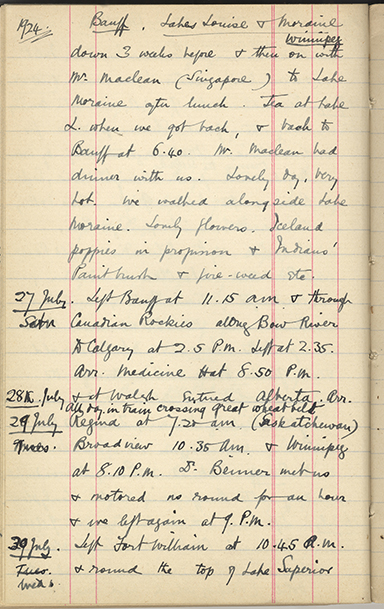 1924. Banff. Lakes Louise & Moraine
Winnipeg
down 3 weeks before & then on with
Mr. Maclean (Singapore) to Lake
Moraine after lunch. Tea at Lake
L. when we got back, & back to
Banff at 6.40. Mr. Maclean had
dinner with us. Lovely day, very
hot. We walked alongside Lake
Moraine. Lovely flowers. Iceland
poppies in profusion & Indians'
Paintbrush & fire-weed etc.
27 July. Left Banff at 11.15 a.m. & through
Canadian Rockies along Bow River
to Calgary at 2.5 P.M. Left at 2.35.
Arr. Medicine Hat 8.50 P.M.
28th. July & at Walsh entered Alberta. Arr.
All day in train crossing great wheat belt
29 July Regina at 7.20 am. (Saskatchewan)
Tues. Broadview 10.35 AM. & Winnipeg
at 8.10 P.M. Dr. met us
& motored us round for an hour
& we left again at 9. P.M.
30 July. Left Fort William at 10.45 A.M.
Tues. & round the top of Lake Superior
Weds.